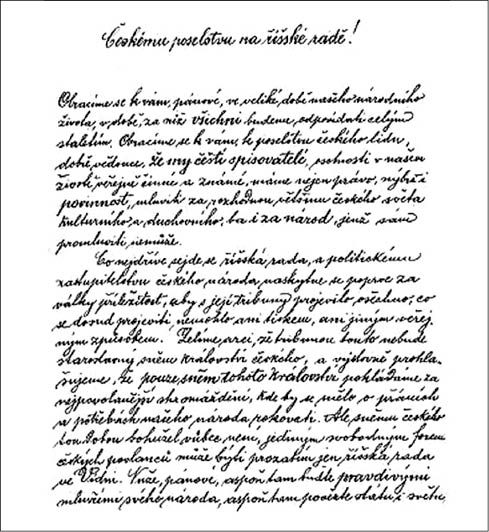 Českému poselstvu na říšské radě!
Obracíme se k vám, pánové, ve veliké době našeho národního
života, v době, za niž všichni budeme odpovídati celým
staletím. Obracíme se k vám, k poselstvu českého lidu,
dobře vědouce, že my čeští spisovatelé, osobnosti v našem
životě veřejně činné a známé, máme nejen právo, nýbrž i
povinnost, mluvit za rozhodnou většinu českého světa
kulturního a duchovního, ba i za národ, jenž sám
promluviti nemůže.
Co nejdříve sejde se říšská rada, a politickému
zastupitelstvu českého národa naskytne se poprvé za
války příležitost, aby s její tribuny projevilo všechno, co
se dosud projeviti nemohlo ani tiskem, ani jiným veřej
ným způsobem. Želíme, arci, že tribunou touto nebude
starodávný sněm království českého, a výslovně prohla-
šujeme, že pouze sněm tohoto království pokládáme za
nejpovolanější shromáždění, kde by se mělo o přáních
a potřebách našeho národa rokovati. Ale sněmu českého
tou dobou bohužel vůbec není, jediným svobodným forem
českých poslanců může býti prozatím jen říšská rada
ve Vídni. Nuže, pánové, aspoň tam buďte pravdivými
mluvčími svého národa, aspoň tam povězte státu i světu,